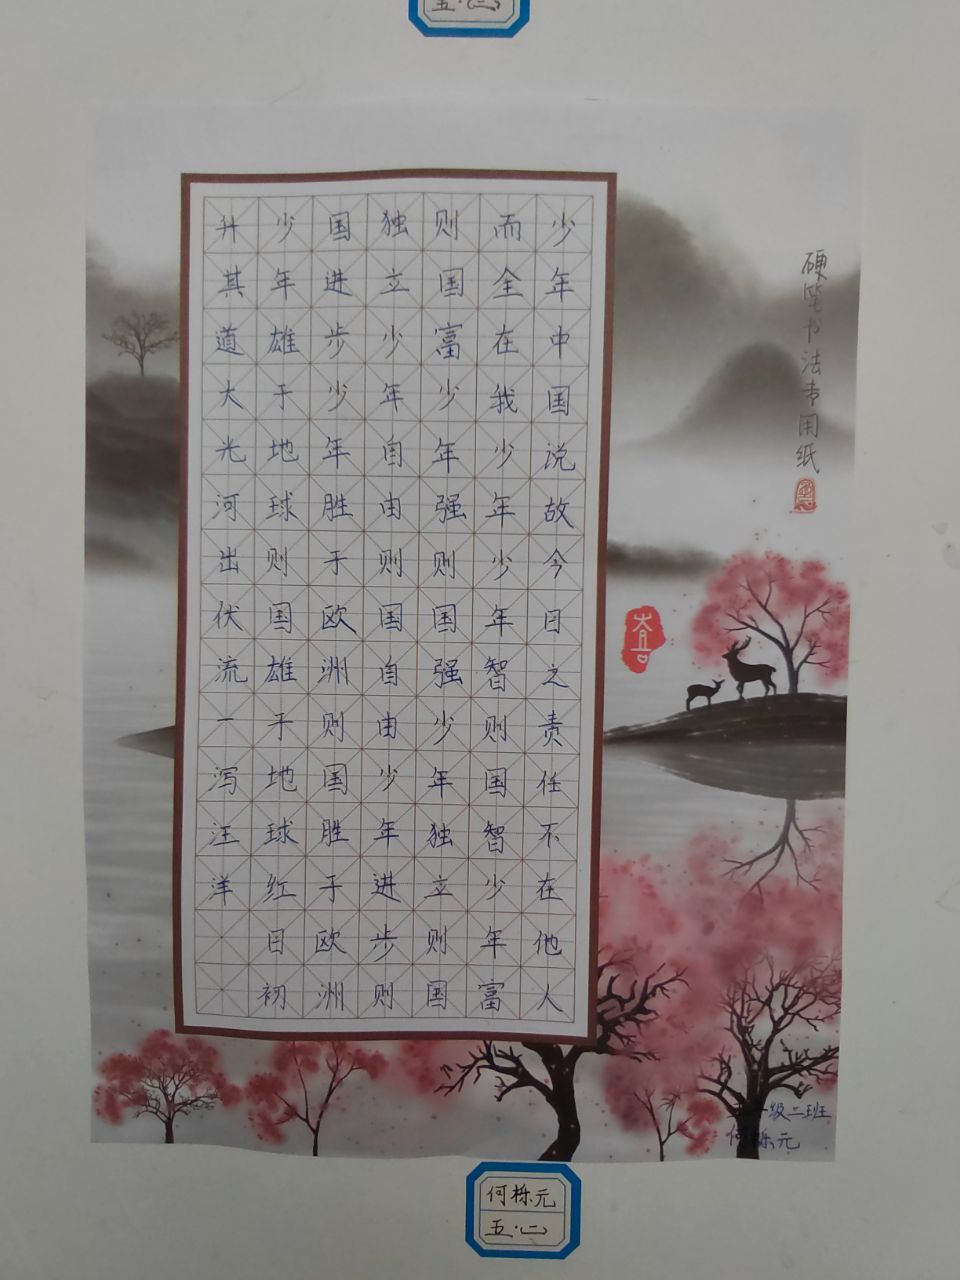 五·(二)
硬笔书法专用纸
少年中国说故今日之责任不在他人
而全在我少年少年智则国智少年富
则国富少年强则国强少年独立则国
独立少年自由则国自由少年进步则
国进步少年胜于欧洲则国胜于欧洲
少年雄于地球则国雄于地球红日初
升其道大光河出伏流一泻汪洋
五年级二班
何栎元
何栎元
五·(二)